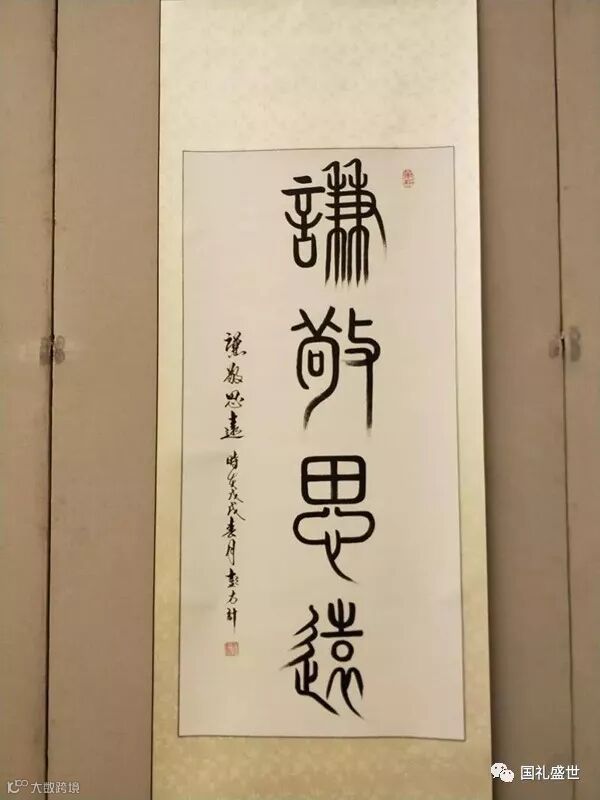 謙敬思遠
謙敬思遠 時在戊戌春月 彭方
大数跨境
国礼盛世